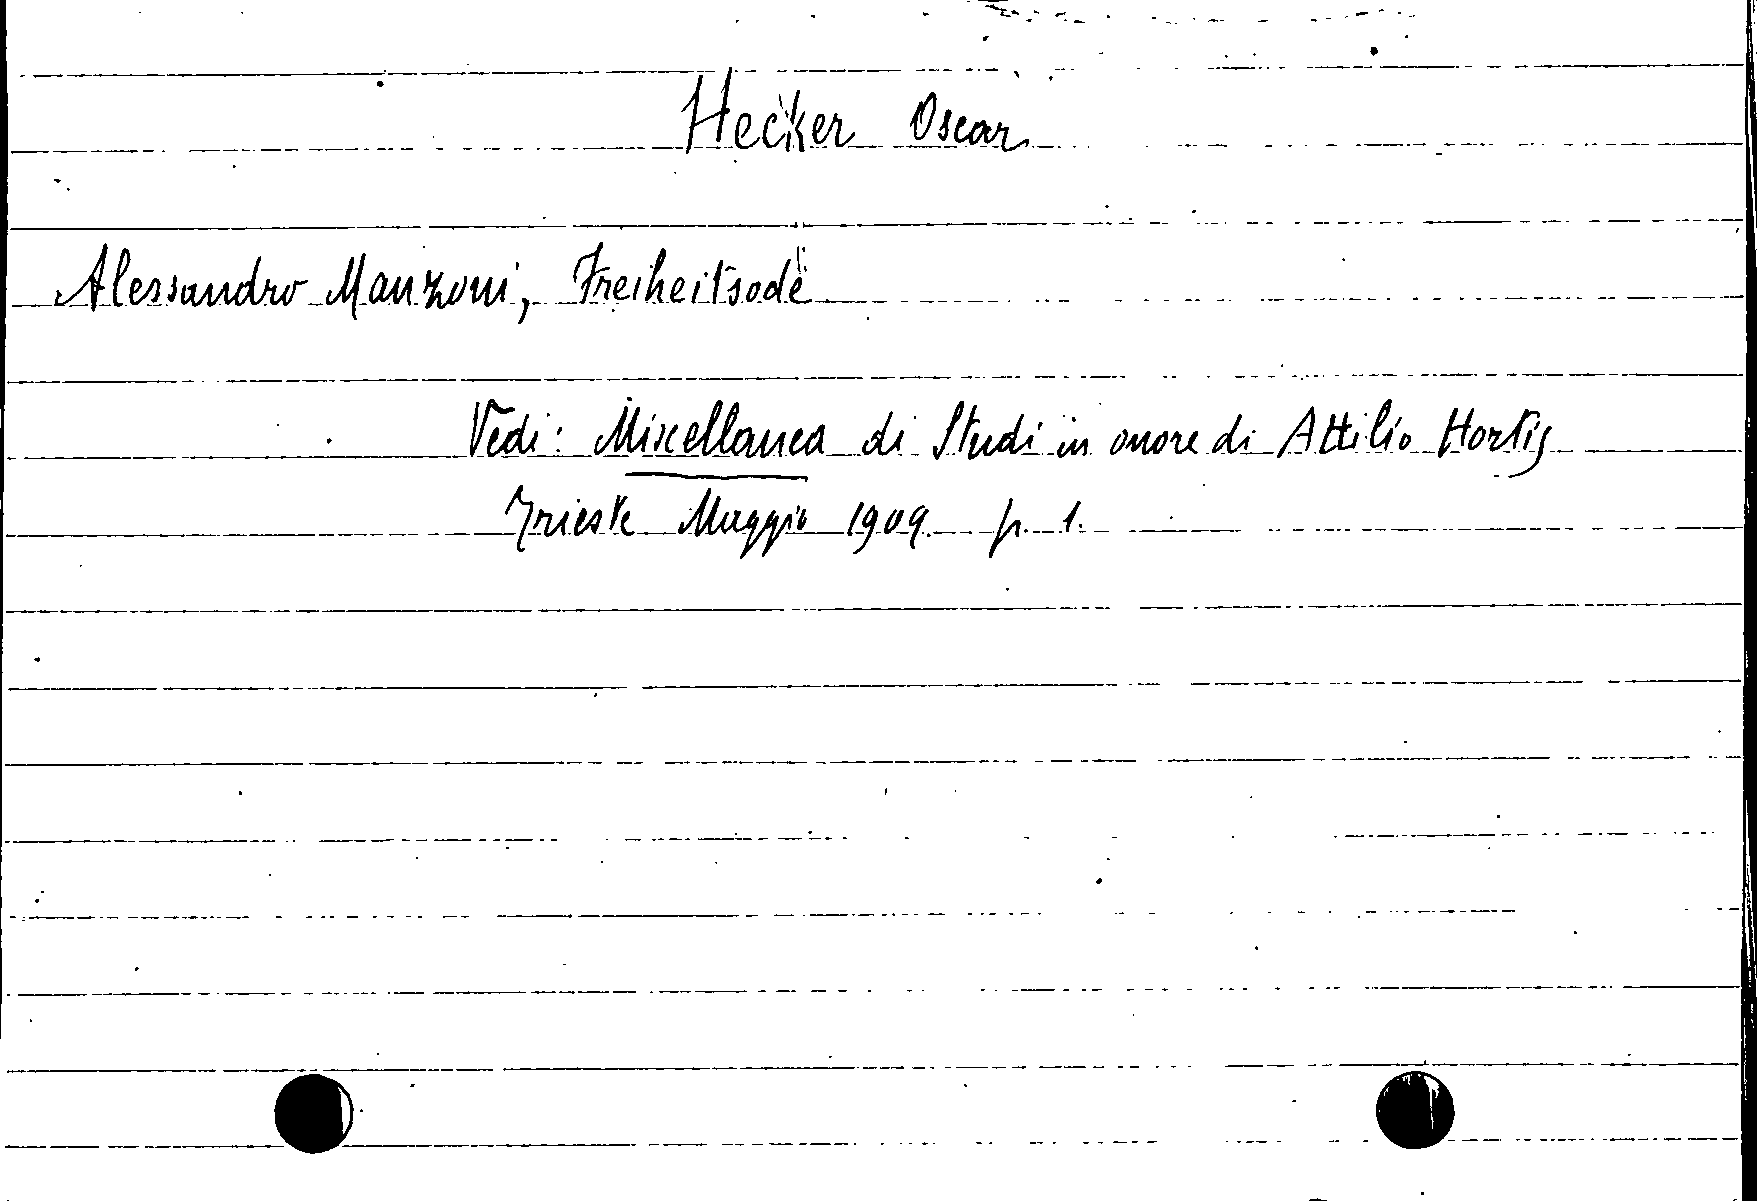 Hecker Oscar
Alessandro Manzoni, Freiheitsode
Vedi: Miscellanea di Studi in onore di Attilio Hortis
Trieste Maggio 1909. p. 1.